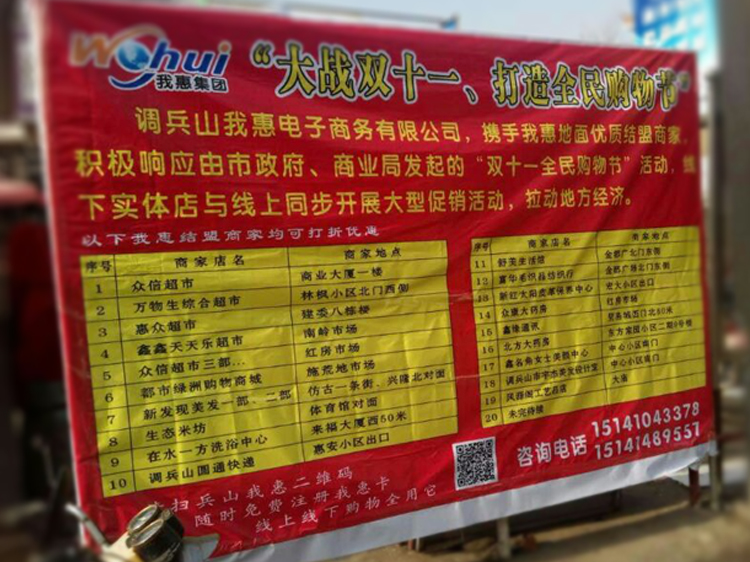 Wohui
我惠集团
“大战双十一、打造全民购物节”
调兵山我惠电子商务有限公司，携手我惠地面优质结盟商家，
积极响应由市政府、商业局发起的“双十一全民购物节”活动，线
下实体店与线上同步开展大型促销活动，拉动地方经济。
以下我惠结盟商家均可打折优惠
序号 商家店名 商家地点
1 众信超市 商业大厦一楼
2 万物生综合超市 林枫小区北门西侧
3 惠众超市 建委八栋楼
4 鑫鑫天天乐超市 南岭市场
5 众信超市三部... 红房市场
6 都市绿洲购物商城 施荒地市场
7 新发现美发一部、二部 仿古一条街、兴隆北对面
8 生态米坊 体育馆对面
9 在水一方洗浴中心 来福大厦西50米
10 调兵山圆通快递 惠安小区出口
序号 商家店名 商家地点
11 舒美生活馆 金都广北门东侧
12 富华毛织品纺织行 金都广场北门东侧
13 新红太阳皮革保养中心 宏大小区出口
14 众康大药房 红房市场
15 鑫缘通讯 北80米
16 北方大药房 东方家园小区二期9号楼
17 鑫名角女士美颜中心 中心小区南门
18 调兵山市宇杰美发设计室 中心小区南门
19 凤彩阁工艺品店 大庙
20 未完待续
咨询电话 15141043378
15141489557
扫兵山我惠二维码
随时免费注册我惠卡
线上线下购物全用它